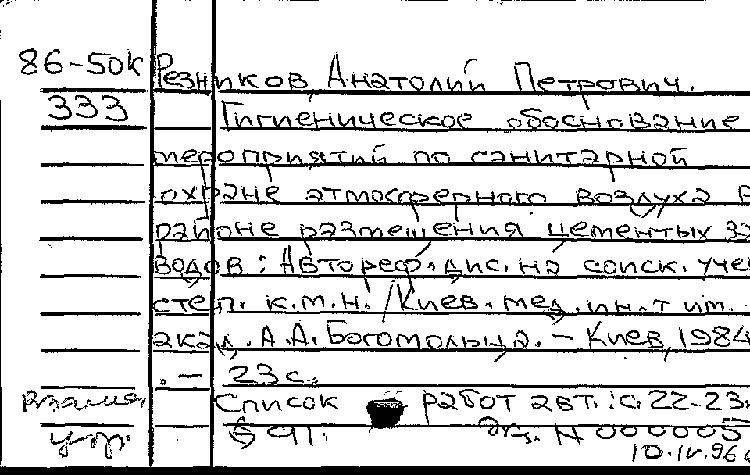 86-50к Резников, Анатолий Петрович.
333 Гигиеническое обоснование
мероприятий по санитарной
охране атмосферного воздуха в
районе размещения цементых за
водов: Автореф. дис. на соиск. учен
степ. к.м.н. / Киев. мед. ин-т им.
акад. А.А. Богомольца. - Киев, 1984
. - 23 с.
Список работ авт.: с. 22-23.
N 000005
10.IV.96